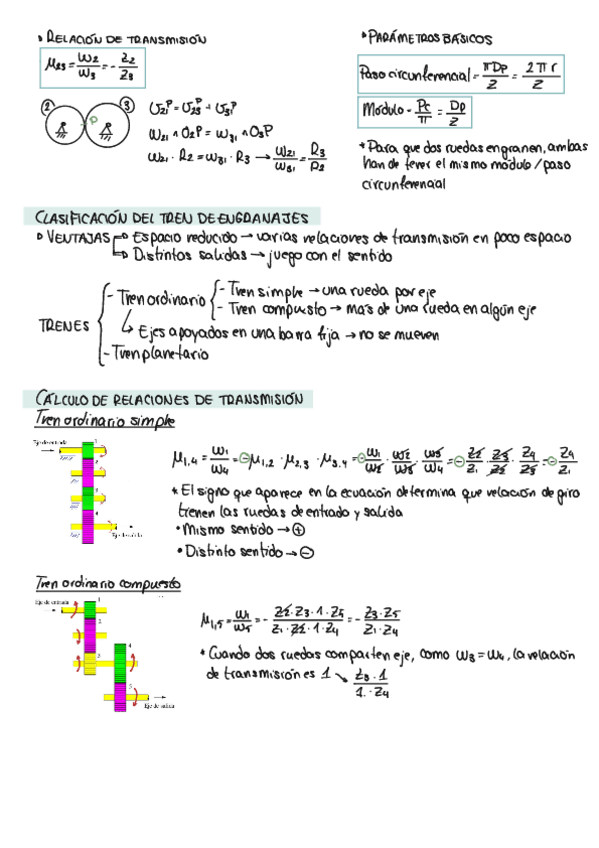 RELACIÓN DE TRANSMISIÓN
μ23 = ω2/ω3 = - Z2/Z3
2 3
P
PARÁMETROS BÁSICOS
Paso circunferencial = πDp/Z = 2πr/Z
Módulo = Pc/π = Dp/Z
* Para que dos ruedas engranen, ambas
han de tener el mismo módulo / paso
circunferencial
ω21 ∧ O2P = ω31 ∧ O3P
ω21 · R2 = ω31 · R3 → ω21/ω31 = R3/R2
CLASIFICACIÓN DEL TREN DE ENGRANAJES
VENTAJAS → Espacio reducido → varias relaciones de transmisión en poco espacio
→ Distintos salidas → juego con el sentido
TRENES
- Tren ordinario
- Tren simple → una rueda por eje
- Tren compuesto → más de una rueda en algún eje
↳ Ejes apoyados en una barra fija → no se mueven
- Tren planetario
CÁLCULO DE RELACIONES DE TRANSMISIÓN
Tren ordinario simple
Eje de entrada
Eje de salida
μ1,4 = ω1/ω4 = ⊖ μ1,2 · μ2,3 · μ3,4 = ⊖ ω1/ω2 · ω2/ω3 · ω3/ω4 = ⊖ Z2/Z1 · Z3/Z2 · Z4/Z3 = ⊖ Z4/Z1
* El signo que aparece en la ecuación determina que relación de giro
tienen las ruedas de entrada y salida
• Mismo sentido → ⊕
• Distinto sentido → ⊖
Tren ordinario compuesto
Eje de entrada
1
2
3
4
5
Eje de salida
μ1,5 = ω1/ω5 = - Z2·Z3·1·Z5/Z1·Z2·1·Z4 = - Z3·Z5/Z1·Z4
* Cuando dos ruedas comparten eje, como ω3 = ω4, la relación
de transmisión es 1 ↘ Z3·1/1·Z4